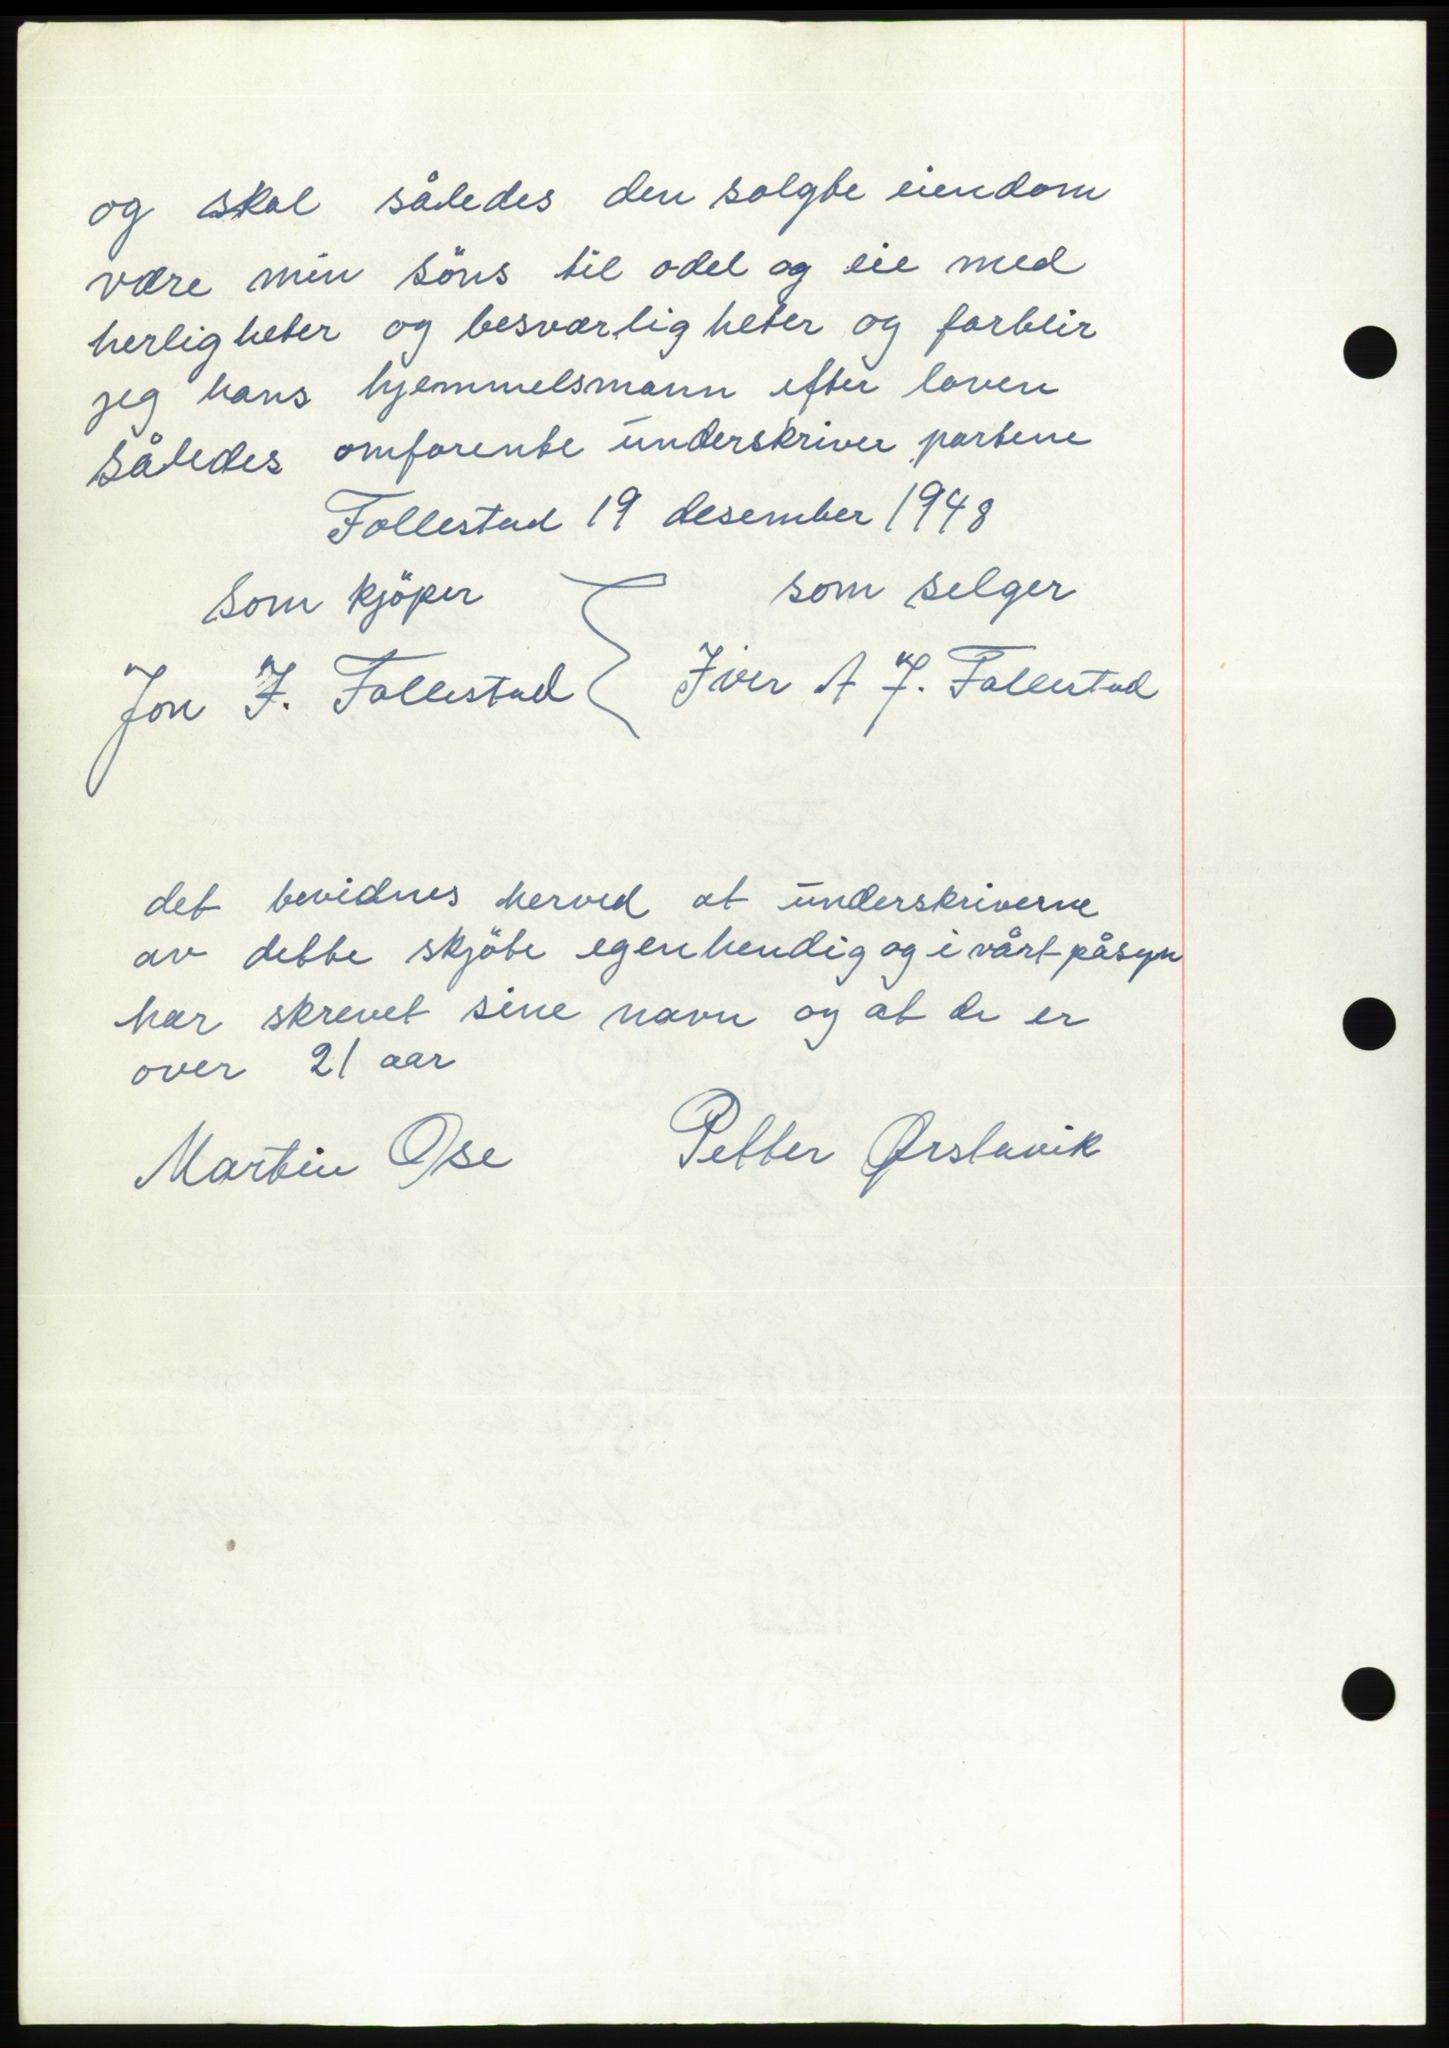 og skal således den solgte eiendom
være min søns til odel og eie med
herligheter og besværligheter og forblir
jeg hans hjemmelsmann efter loven
således omforente underskriver partene
Follestad 19 desember 1948
som kjøper som selger
Jon I. Follestad Iver A J. Follestad
det bevidnes herved at underskriverne
av dette skjøte egenhendig og i vårt påsyn
har skrevet sine navn og at de er
over 21 aar
Martin Ose Petter Ørstavik